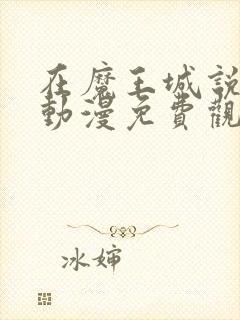 在魔王城說
動漫免費觀
冰婶